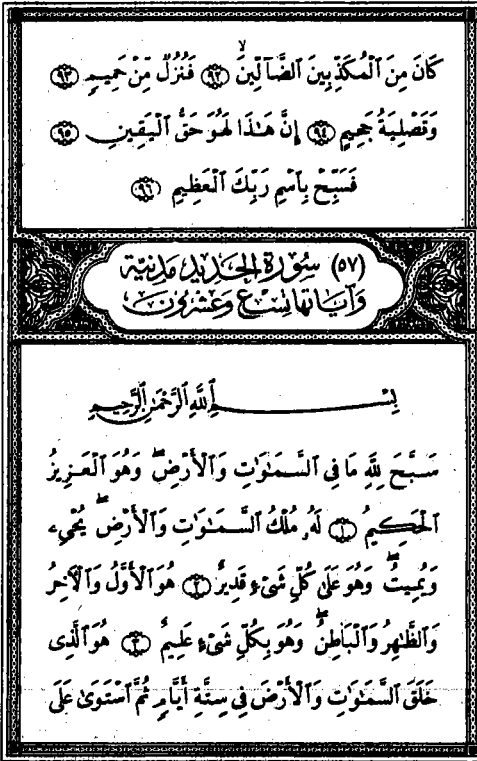 كَانَ مِنَ ٱلْمُكَذِّبِينَ ٱلضَّآلِّينَ ۙ ﴿٩٢﴾ فَنُزُلٌ مِّنْ حَمِيمٍ ﴿٩٣﴾
وَتَصْلِيَةُ جَحِيمٍ ﴿٩٤﴾ إِنَّ هَـٰذَا لَهُوَ حَقُّ ٱلْيَقِينِ ﴿٩٥﴾
فَسَبِّحْ بِٱسْمِ رَبِّكَ ٱلْعَظِيمِ ﴿٩٦﴾
(٥٧) سُورَة الحَديد مَدنيَّة
وَآيَاتهَا تِسْع وَعشْرُونَ
بِسْــــمِ ٱللَّهِ ٱلرَّحْمَـٰنِ ٱلرَّحِيمِ
سَبَّحَ لِلَّهِ مَا فِى ٱلسَّمَـٰوَٰتِ وَٱلْأَرْضِ ۖ وَهُوَ ٱلْعَزِيزُ
ٱلْحَكِيمُ ﴿١﴾ لَهُۥ مُلْكُ ٱلسَّمَـٰوَٰتِ وَٱلْأَرْضِ ۖ يُحْىِۦ
وَيُمِيتُ ۖ وَهُوَ عَلَىٰ كُلِّ شَىْءٍ قَدِيرٌ ﴿٢﴾ هُوَ ٱلْأَوَّلُ وَٱلْآخِرُ
وَٱلظَّـٰهِرُ وَٱلْبَاطِنُ ۖ وَهُوَ بِكُلِّ شَىْءٍ عَلِيمٌ ﴿٣﴾ هُوَ ٱلَّذِى
خَلَقَ ٱلسَّمَـٰوَٰتِ وَٱلْأَرْضَ فِى سِتَّةِ أَيَّامٍ ثُمَّ ٱسْتَوَىٰ عَلَى